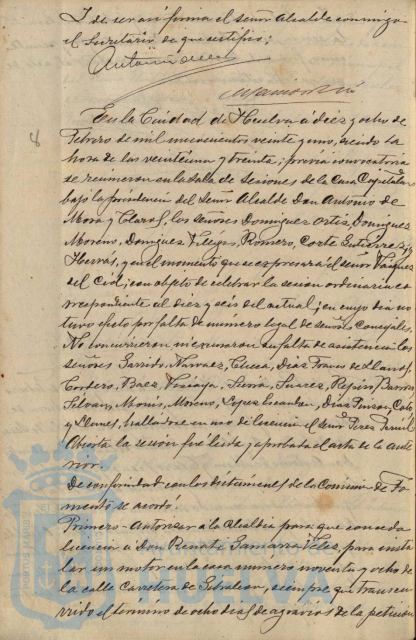 Y de ser así firma el señor Alcalde conmigo
el Secretario de que certifico:
8
En la Ciudad de Huelva á diez y ocho de
Febrero de mil novecientos veinte y uno, siendo la
hora de las veintiuna y treinta; previa convocatoria
se reunieron en la Sala de Sesiones de la Casa Capitular
bajo la presidencia del Señor Alcalde Don Antonio de
Mora y Claros, los señores Dominguez Ortiz, Dominguez
Moreno, Dominguez Villegas, Romero, Corte Gutierrez y
y en el momento que se expresará el señor Vazquez
del Cid, con objeto de celebrar la sesion ordinaria co
rrespondiente al diez y seis del actual, en cuyo dia no
tuvo efecto por falta de numero legal de señores Concejales.
No concurrieron ni excusaron su falta de asistencia los
señores Garrido, Narvaez, Checa, Diaz Franco de Llanos,
Cordero, Baez, Vizcaya, Serra, Suarez, Pepin, Barrios,
Moreno, Lopez
y hallandose en uso de licencia el señor Perez
Abierta la sesion fué leida y aprobada el acta de la ante
rior.
De conformidad con los dictamenes de la Comision de Fo
mento se acordó.
Primero - Autorizar a la Alcaldia para que conceda
licencia a Don Renato Velez, para insta
lar un motor en la casa numero noventa y ocho de
la calle Carretera de Gibraleon, siempre que transcu
rrido el término de ocho dias de agravios de la peticion